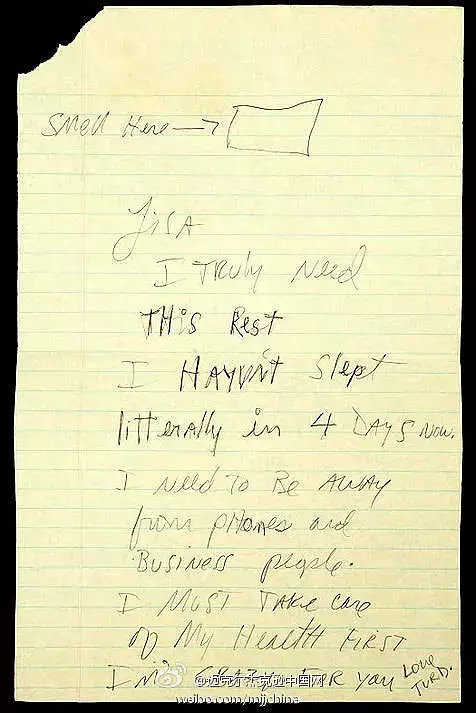 Smell Here →
Lisa
I Truly Need
THis Rest
I HAVen't Slept
litterally in 4 DAYS now.
I need To Be AWAY
from pHones and
Business people.
I Must TAKE Care
of My HeaLTH FIRST
I'm CRAZY For you Love
TURD.
@迈克尔杰克逊中国网
weibo.com/mjjchina